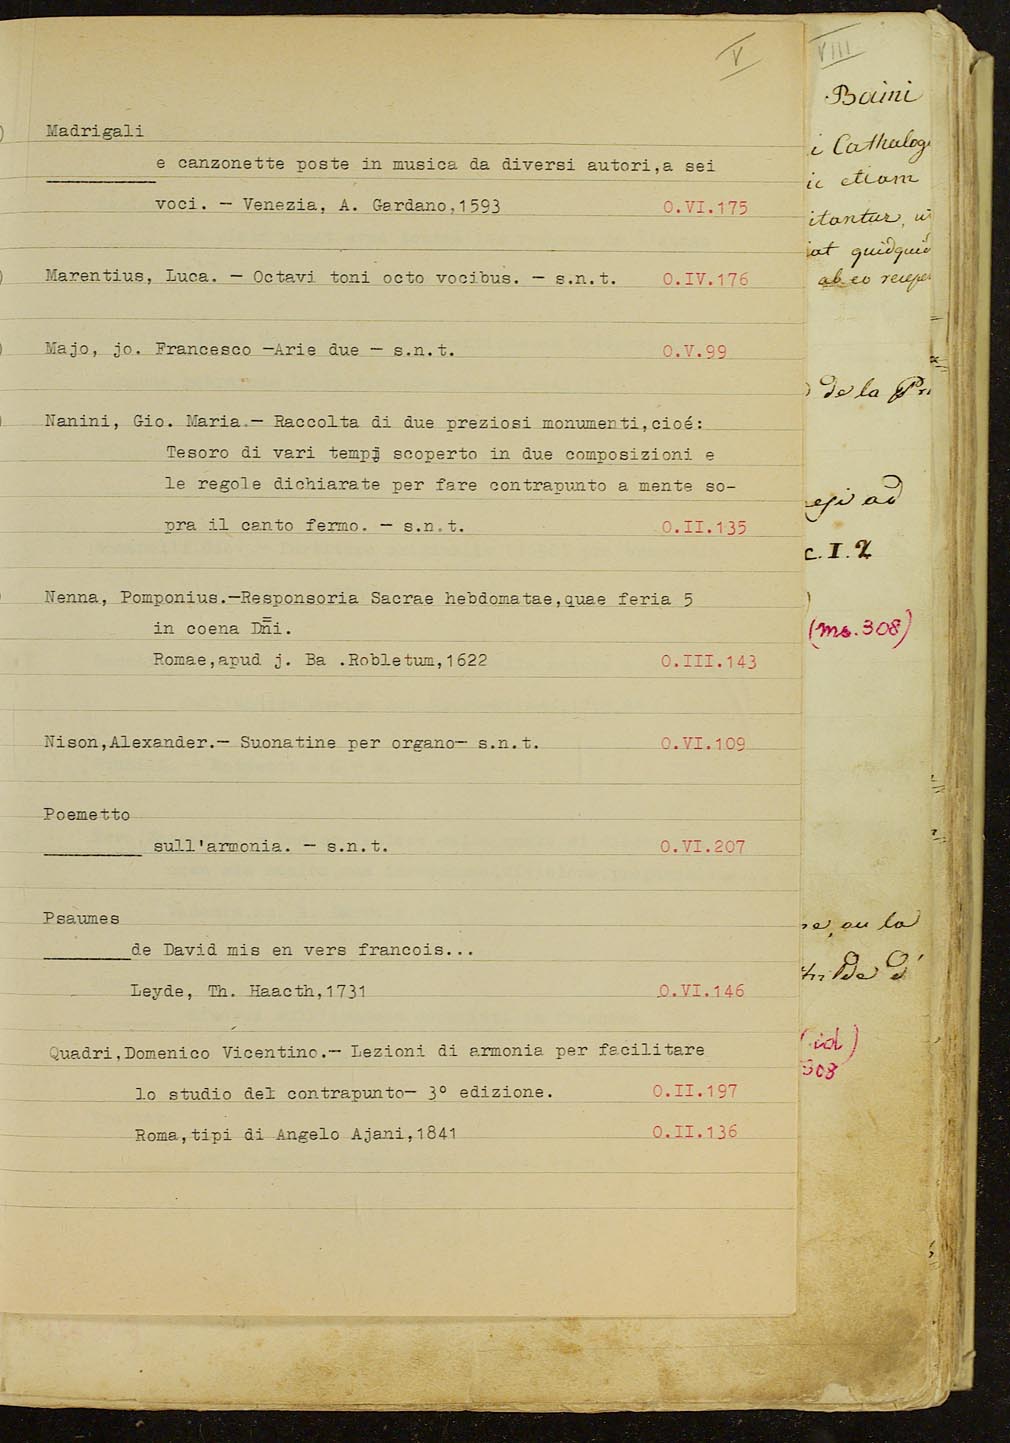 V
Madrigali
e canzonette poste in musica da diversi autori,a sei
voci. – Venezia, A. Gardano,1593 O.VI.175
Marentius, Luca. – Octavi toni octo vocibus. – s.n.t. O.IV.176
Majo, jo. Francesco –Arie due – s.n.t. O.V.99
Nanini, Gio. Maria.– Raccolta di due preziosi monumenti,cioé:
Tesoro di vari tempj scoperto in due composizioni e
le regole dichiarate per fare contrapunto a mente so-
pra il canto fermo. – s.n.t. O.II.135
Nenna, Pomponius.–Responsoria Sacrae hebdomatae,quae feria 5
in coena Dn̄i.
Romae,apud j. Ba .Robletum,1622 O.III.143
Nison,Alexander.– Suonatine per organo– s.n.t. O.VI.109
Poemetto
sull'armonia. – s.n.t. O.VI.207
Psaumes
de David mis en vers francois...
Leyde, Th. Haacth,1731 O.VI.146
Quadri,Domenico Vicentino.– Lezioni di armonia per facilitare
lo studio del contrapunto– 3° edizione. O.II.197
Roma,tipi di Angelo Ajani,1841 O.II.136
VIII
Baini
i Cathalog
ic etiam
itantur, u
at quidquid
ab eo
de la
ad
c. I. 2
(ms. 308)
ou la
De
(id)
308